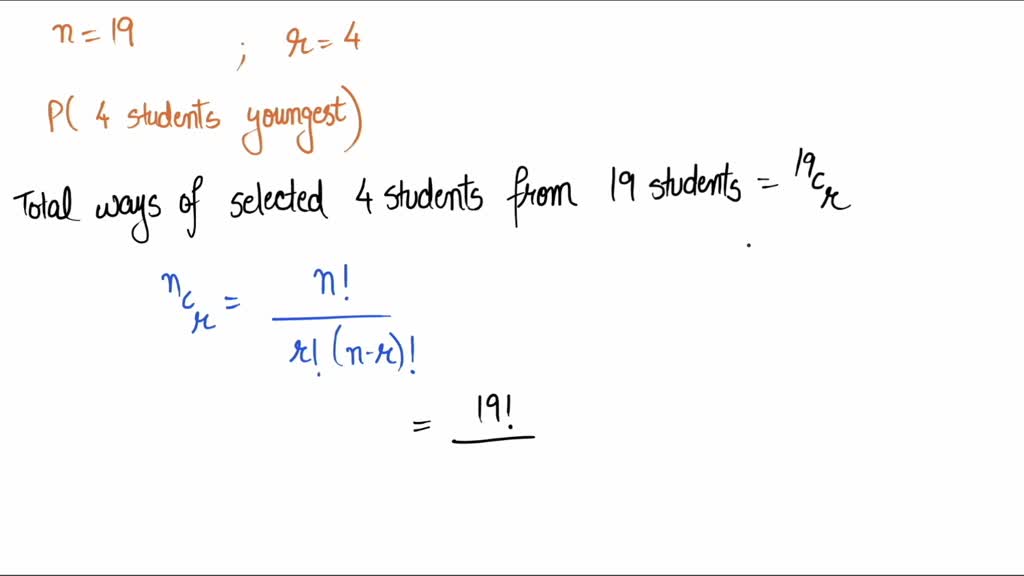 n = 19 ; r = 4
P( 4 students youngest)
Total ways of selected 4 students from 19 students = ¹⁹Cᵣ
ⁿCᵣ = n! / r! (n-r)!
= 19!